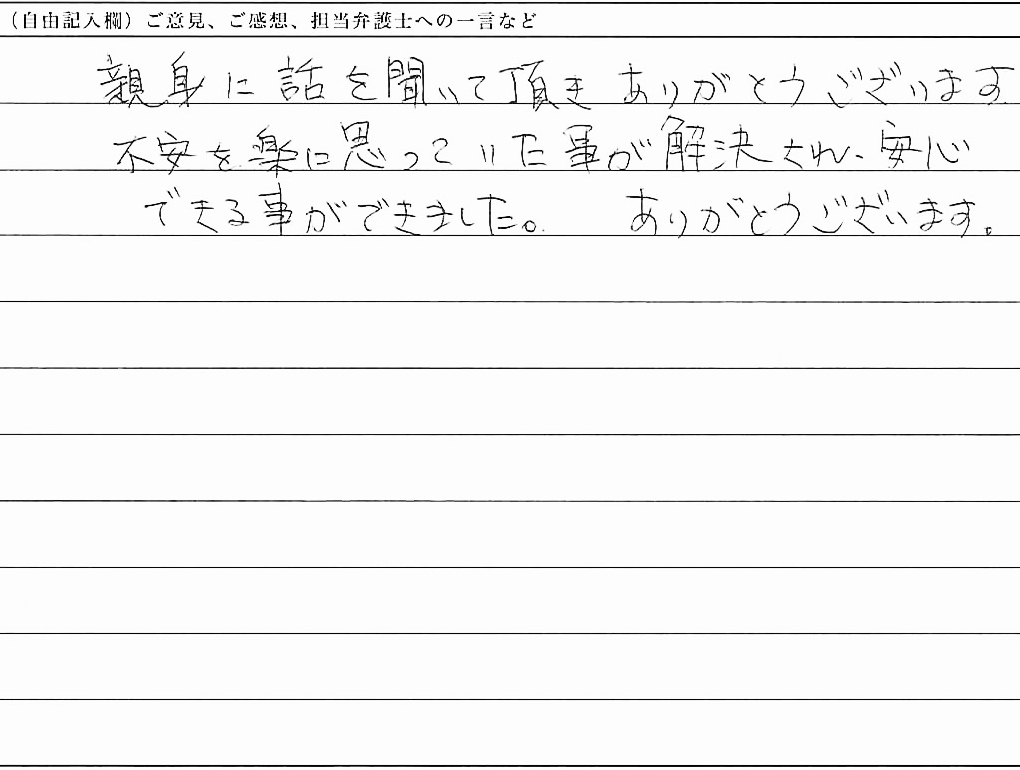 （自由記入欄）ご意見、ご感想、担当弁護士への一言など
親身に話を聞いて頂きありがとうございます。
不安を楽に思っていた事が解決され、安心
できる事ができました。 ありがとうございます。